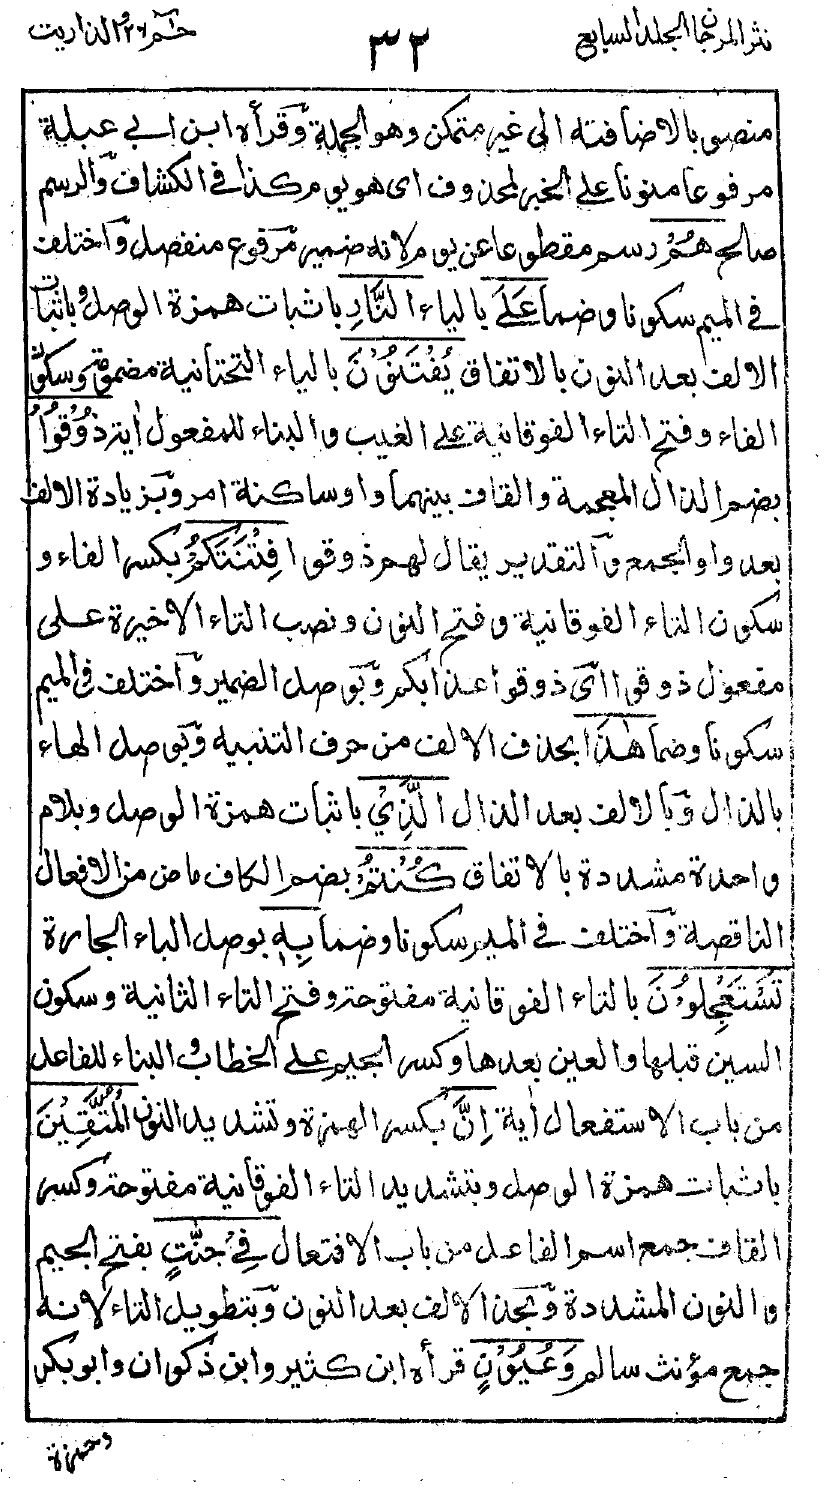 نثر المرجان الجلد السابع
٣٢
حـم ٢٦ والذاريت
منصوبا لاضافته الى غير متمكن وهو الجملة وقرأه ابن ابي عبلة
مرفوعا منونا على الخبر لمحذوف اى هو يوم كذا في الكشاف والرسم
صالح هُمْ رسم مقطوعا عن يوم لانه ضمير مرفوع منفصل واختلف
في الميم سكونا وضما عَلَى بالياء النَّارِ باثبات همزة الوصل وباثبات
الالف بعد النون بالاتفاق يُفْتَنُوْنَ بالياء التحتانية مضمومة وسكون
الفاء وفتح التاء الفوقانية على الغيب والبناء للمفعول اية ذُوْقُوْا
بضم الذال المعجمة والقاف بينهما واو ساكنة امر وبزيادة الالف
بعد واو الجمع والتقدير يقال لهم ذوقوا فِتْنَتَكُمْ بكسر الفاء و
سكون التاء الفوقانية وفتح النون ونصب التاء الاخيرة على
مفعول ذوقوا اى ذوقوا عذابكم وبوصل الضمير واختلف في الميم
سكونا وضما هٰذَا بحذف الالف من حرف التنبيه وبوصل الهاء
بالذال وبالالف بعد الذال الَّذِيْ باثبات همزة الوصل وبلام
واحدة مشددة بالاتفاق كُنْتُمْ بضم الكاف ماض من الافعال
الناقصة واختلف في الميم سكونا وضما بِهٖ بوصل الباء الجارة
تَسْتَعْجِلُوْنَ بالتاء الفوقانية مفتوحة وفتح التاء الثانية وسكون
السين قبلها والعين بعدها وكسر الجيم على الخطاب والبناء للفاعل
من باب الاستفعال اية اِنَّ بكسر الهمزة وتشديد النون الْمُتَّقِيْنَ
باثبات همزة الوصل وبتشديد التاء الفوقانية مفتوحة وكسر
القاف جمع اسم الفاعل من باب الافتعال فِيْ جَنّٰتٍ بفتح الجيم
والنون المشددة وبحذف الالف بعد النون وبتطويل التاء لانه
جمع مؤنث سالم وَعُيُوْنٍ قرأه ابن كثير وابن ذكوان وابو بكر
وحمزة